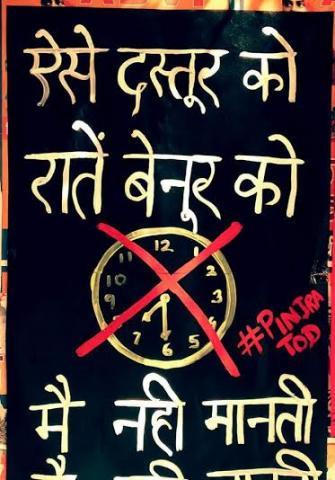 ऐसे दस्तूर को
रातें बेनूर को
12
1
2
3
4
5
6
7
8
9
10
11
#PINJRA
TOD
मै नही मानती